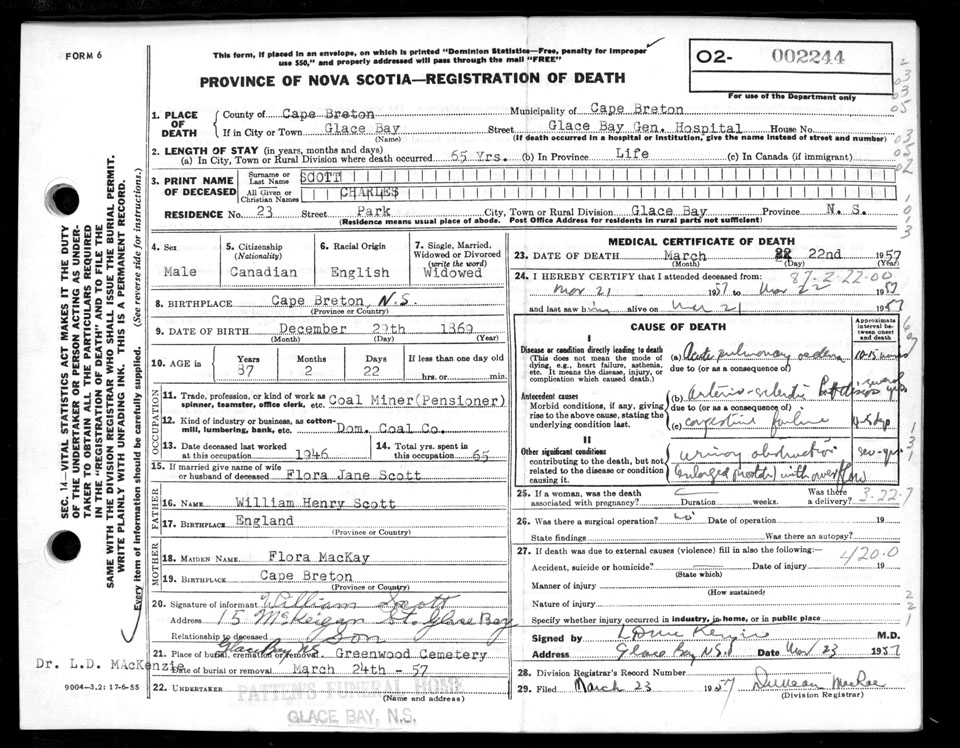 FORM 6
This form, if placed in an envelope, on which is printed "Dominion Statistics—Free, penalty for improper
use $50," and properly addressed will pass through the mail "FREE"
O2- 002244
For use of the Department only
PROVINCE OF NOVA SCOTIA—REGISTRATION OF DEATH
SEC. 14—VITAL STATISTICS ACT MAKES IT THE DUTY
OF THE UNDERTAKER OR PERSON ACTING AS UNDER-
TAKER TO OBTAIN ALL THE PARTICULARS REQUIRED
IN THE "REGISTRATION OF DEATH" AND TO FILE THE
SAME WITH THE DIVISION REGISTRAR WHO SHALL ISSUE THE BURIAL PERMIT.
WRITE PLAINLY WITH UNFADING INK. THIS IS A PERMANENT RECORD.
Every item of information should be carefully supplied. (See reverse side for instructions.)
1. PLACE OF DEATH
County of Cape Breton Municipality of Cape Breton
If in City or Town Glace Bay Street Glace Bay Gen. Hospital House No.
(Name) (If death occurred in a hospital or institution, give the name instead of street and number)
2. LENGTH OF STAY (in years, months and days)
(a) In City, Town or Rural Division where death occurred 65 Yrs. (b) In Province Life (c) In Canada (if immigrant)
3. PRINT NAME OF DECEASED
Surname or Last Name SCOTT
All Given or Christian Names CHARLES
RESIDENCE No. 23 Street Park City, Town or Rural Division Glace Bay Province N. S.
(Residence means usual place of abode. Post Office Address for residents in rural parts not sufficient)
4. Sex
Male
5. Citizenship
(Nationality)
Canadian
6. Racial Origin
English
7. Single, Married,
Widowed or Divorced
(write the word)
Widowed
8. BIRTHPLACE Cape Breton, N.S.
(Province or Country)
9. DATE OF BIRTH December 1869
(Month) (Day) (Year)
10. AGE in
Years Months Days If less than one day old
87 2 22 hrs. or min.
OCCUPATION
11. Trade, profession, or kind of work as
spinner, teamster, office clerk, etc. Coal Miner(Pensioner)
12. Kind of industry or business, as cotton-
mill, lumbering, bank, etc. Dom. Coal Co.
13. Date deceased last worked
at this occupation 1946
14. Total yrs. spent in
this occupation 65
15. If married give name of wife
or husband of deceased Flora Jane Scott
FATHER
16. NAME William Henry Scott
17. BIRTHPLACE England
(Province or Country)
MOTHER
18. MAIDEN NAME Flora MacKay
19. BIRTHPLACE Cape Breton
(Province or Country)
20. Signature of informant William Scott
Address 15 McKeigan St. Glace Bay
Relationship to deceased Son
Glace Bay N.S.
21. Place of burial, cremation or removal Greenwood Cemetery
Date of burial or removal March 24th - 57
22. UNDERTAKER PATTEN'S FUNERAL HOME
(Name and address)
GLACE BAY, N.S.
Dr. L.D. MAcKenzie
9004-3.2: 17-6-55
MEDICAL CERTIFICATE OF DEATH
23. DATE OF DEATH March 22nd 1957
(Month) (Day) (Year)
87-2-22-00
24. I HEREBY CERTIFY that I attended deceased from:
Mar 21 1957 to Mar 22 1957
and last saw him alive on Mar 21 1957
CAUSE OF DEATH
Approximate
interval be-
tween onset
and death
I
Disease or condition directly leading to death
(This does not mean the mode of
dying, e.g., heart failure, asthenia,
etc. It means the disease, injury, or
complication which caused death.)
(a) Acute pulmonary oedema
due to (or as a consequence of)
Antecedent causes
Morbid conditions, if any, giving
rise to the above cause, stating the
underlying condition last.
(b) arterio-sclerotic
due to (or as a consequence of)
(c) congestive failure
II
Other significant conditions
contributing to the death, but not
related to the disease or condition
causing it.
urinary obstruction
enlarged prostate with overflow
25. If a woman, was the death
associated with pregnancy? Duration weeks. Was there
a delivery?
3.22.7
26. Was there a surgical operation? no Date of operation 19
State findings Was there an autopsy?
27. If death was due to external causes (violence) fill in also the following:—
420.0
Accident, suicide or homicide? Date of injury 19
(State which)
Manner of injury
(How sustained)
Nature of injury
Specify whether injury occurred in industry, in home, or in public place
Signed by M.D.
Address Glace Bay N.S. Date Mar 23 1957
28. Division Registrar's Record Number
29. Filed March 23 1957 Duncan MacRae
(Division Registrar)